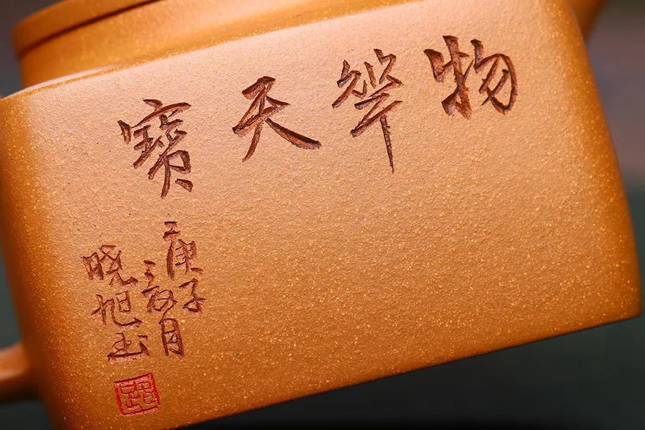 物华天寶
庚子
三月
晓旭